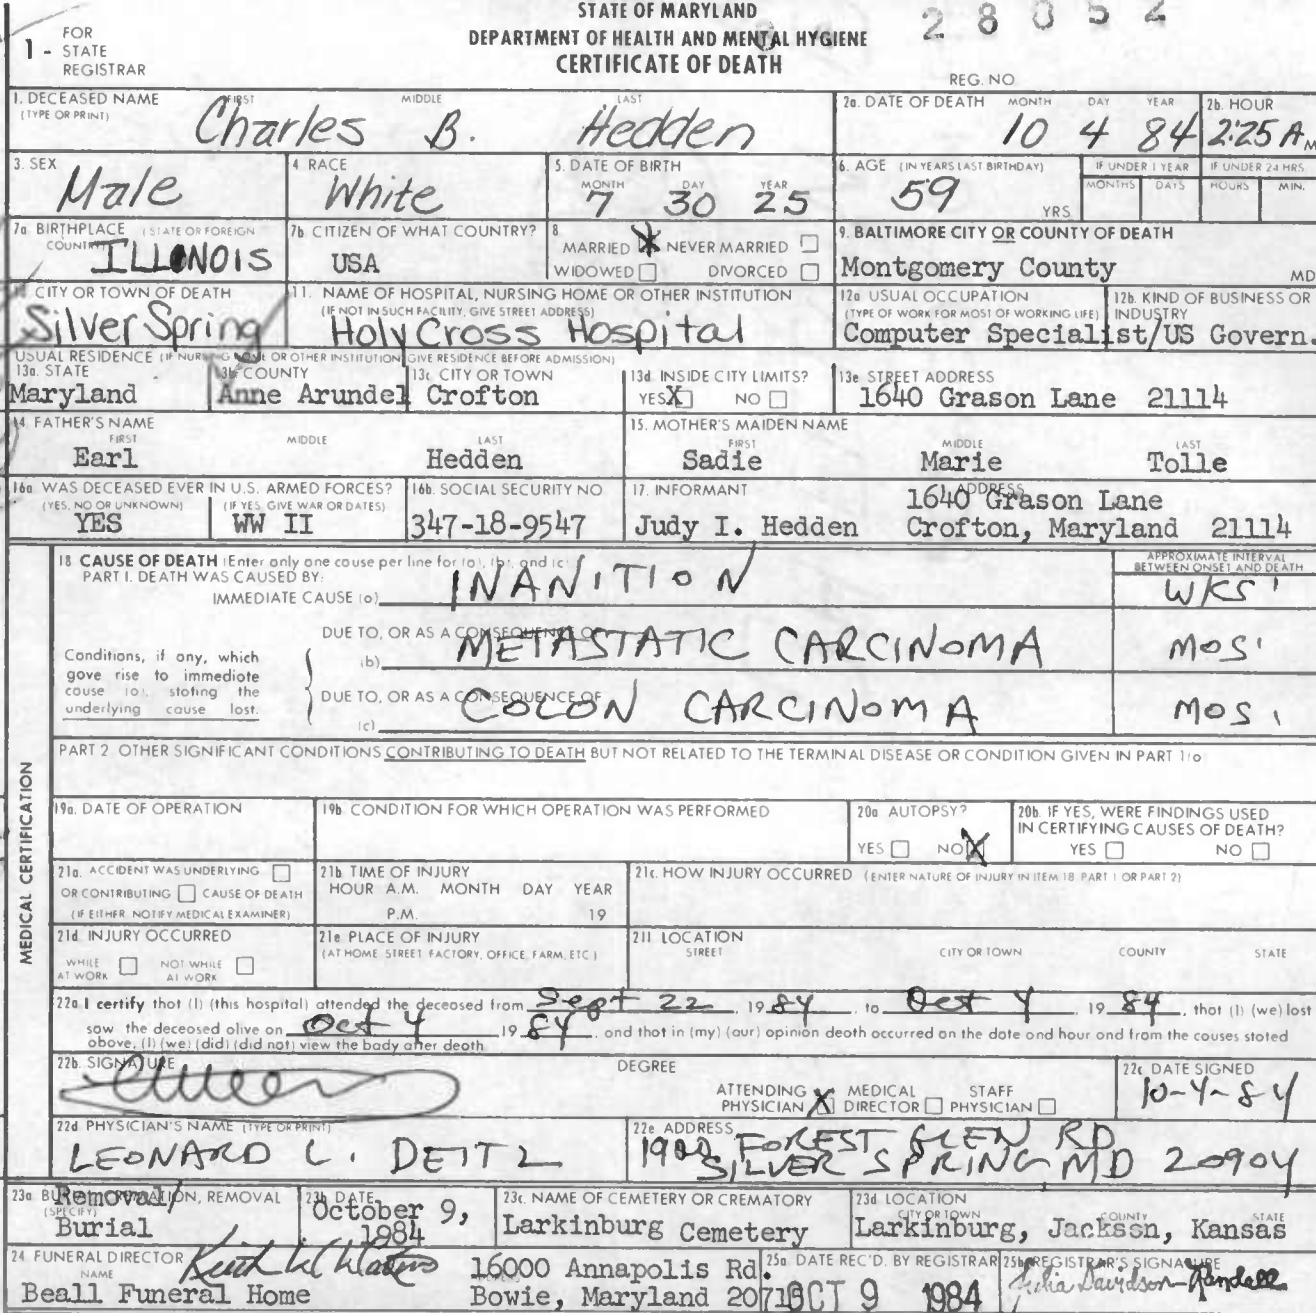 STATE OF MARYLAND
28052
FOR
1 - STATE
REGISTRAR
DEPARTMENT OF HEALTH AND MENTAL HYGIENE
CERTIFICATE OF DEATH
REG. NO
1. DECEASED NAME
(TYPE OR PRINT)
FIRST MIDDLE LAST
Charles B. Hedden
2a. DATE OF DEATH MONTH DAY YEAR
10 4 84
2b. HOUR
2:25 A M
3. SEX
Male
4. RACE
White
5. DATE OF BIRTH
MONTH DAY YEAR
7 30 25
6. AGE (IN YEARS LAST BIRTHDAY)
59 YRS
IF UNDER 1 YEAR
MONTHS DAYS
IF UNDER 24 HRS
HOURS MIN.
7a BIRTHPLACE (STATE OR FOREIGN
COUNTRY)
ILLINOIS
7b CITIZEN OF WHAT COUNTRY?
USA
8
MARRIED X NEVER MARRIED
WIDOWED DIVORCED
9. BALTIMORE CITY OR COUNTY OF DEATH
Montgomery County MD
10. CITY OR TOWN OF DEATH
Silver Spring
11. NAME OF HOSPITAL, NURSING HOME OR OTHER INSTITUTION
(IF NOT IN SUCH FACILITY, GIVE STREET ADDRESS)
Holy Cross Hospital
12a USUAL OCCUPATION
(TYPE OF WORK FOR MOST OF WORKING LIFE)
12b. KIND OF BUSINESS OR
INDUSTRY
Computer Specialist/US Govern.
USUAL RESIDENCE (IF NURSING HOME OR OTHER INSTITUTION, GIVE RESIDENCE BEFORE ADMISSION)
13a. STATE
Maryland
13b COUNTY
Anne Arundel
13c CITY OR TOWN
Crofton
13d. INSIDE CITY LIMITS?
YES X NO
13e STREET ADDRESS
1640 Grason Lane 21114
14. FATHER'S NAME
FIRST MIDDLE LAST
Earl Hedden
15. MOTHER'S MAIDEN NAME
FIRST MIDDLE LAST
Sadie Marie Tolle
16a WAS DECEASED EVER IN U.S. ARMED FORCES?
(YES, NO OR UNKNOWN) (IF YES, GIVE WAR OR DATES)
YES WW II
16b. SOCIAL SECURITY NO
347-18-9547
17. INFORMANT
Judy I. Hedden
ADDRESS
1640 Grason Lane
Crofton, Maryland 21114
MEDICAL CERTIFICATION
18 CAUSE OF DEATH (Enter only one cause per line for (a), (b), and (c)
PART I. DEATH WAS CAUSED BY:
IMMEDIATE CAUSE (a) INANITION
APPROXIMATE INTERVAL
BETWEEN ONSET AND DEATH
WKS
Conditions, if any, which
gave rise to immediate
cause (a), stating the
underlying cause last.
DUE TO, OR AS A CONSEQUENCE OF
(b) METASTATIC CARCINOMA
MOS
DUE TO, OR AS A CONSEQUENCE OF
(c) COLON CARCINOMA
MOS
PART 2 OTHER SIGNIFICANT CONDITIONS CONTRIBUTING TO DEATH BUT NOT RELATED TO THE TERMINAL DISEASE OR CONDITION GIVEN IN PART 1(a)
19a. DATE OF OPERATION
19b. CONDITION FOR WHICH OPERATION WAS PERFORMED
20a AUTOPSY?
YES NO X
20b. IF YES, WERE FINDINGS USED
IN CERTIFYING CAUSES OF DEATH?
YES NO
21a. ACCIDENT WAS UNDERLYING
OR CONTRIBUTING CAUSE OF DEATH
(IF EITHER NOTIFY MEDICAL EXAMINER)
21b TIME OF INJURY
HOUR A.M. MONTH DAY YEAR
P.M. 19
21c. HOW INJURY OCCURRED (ENTER NATURE OF INJURY IN ITEM 18 PART 1 OR PART 2)
21d. INJURY OCCURRED
WHILE AT WORK NOT WHILE AT WORK
21e PLACE OF INJURY
(AT HOME STREET FACTORY, OFFICE, FARM, ETC)
21f LOCATION
STREET CITY OR TOWN COUNTY STATE
22a I certify that (I) (this hospital) attended the deceased from Sept 22, 1984, to Oct 4, 1984, that (I) (we) last
saw the deceased alive on Oct 4 1984, and that in (my) (our) opinion death occurred on the date and hour and from the causes stated
above, (I) (we) (did) (did not) view the body after death
22b. SIGNATURE
DEGREE
ATTENDING PHYSICIAN X MEDICAL DIRECTOR STAFF PHYSICIAN
22c DATE SIGNED
10-4-84
22d PHYSICIAN'S NAME (TYPE OR PRINT)
LEONARD L. DEITZ
22e ADDRESS
FOREST GLEN RD
SILVER SPRING MD 20904
23a BURIAL, CREMATION, REMOVAL
(SPECIFY)
Removal/
Burial
23b DATE
October 9,
1984
23c. NAME OF CEMETERY OR CREMATORY
Larkinburg Cemetery
23d LOCATION
CITY OR TOWN COUNTY STATE
Larkinburg, Jackson, Kansas
24 FUNERAL DIRECTOR
NAME
Beall Funeral Home
16000 Annapolis Rd.
Bowie, Maryland 20715
25a DATE REC'D. BY REGISTRAR
OCT 9 1984
25b REGISTRAR'S SIGNATURE
Julia Davidson-Randall